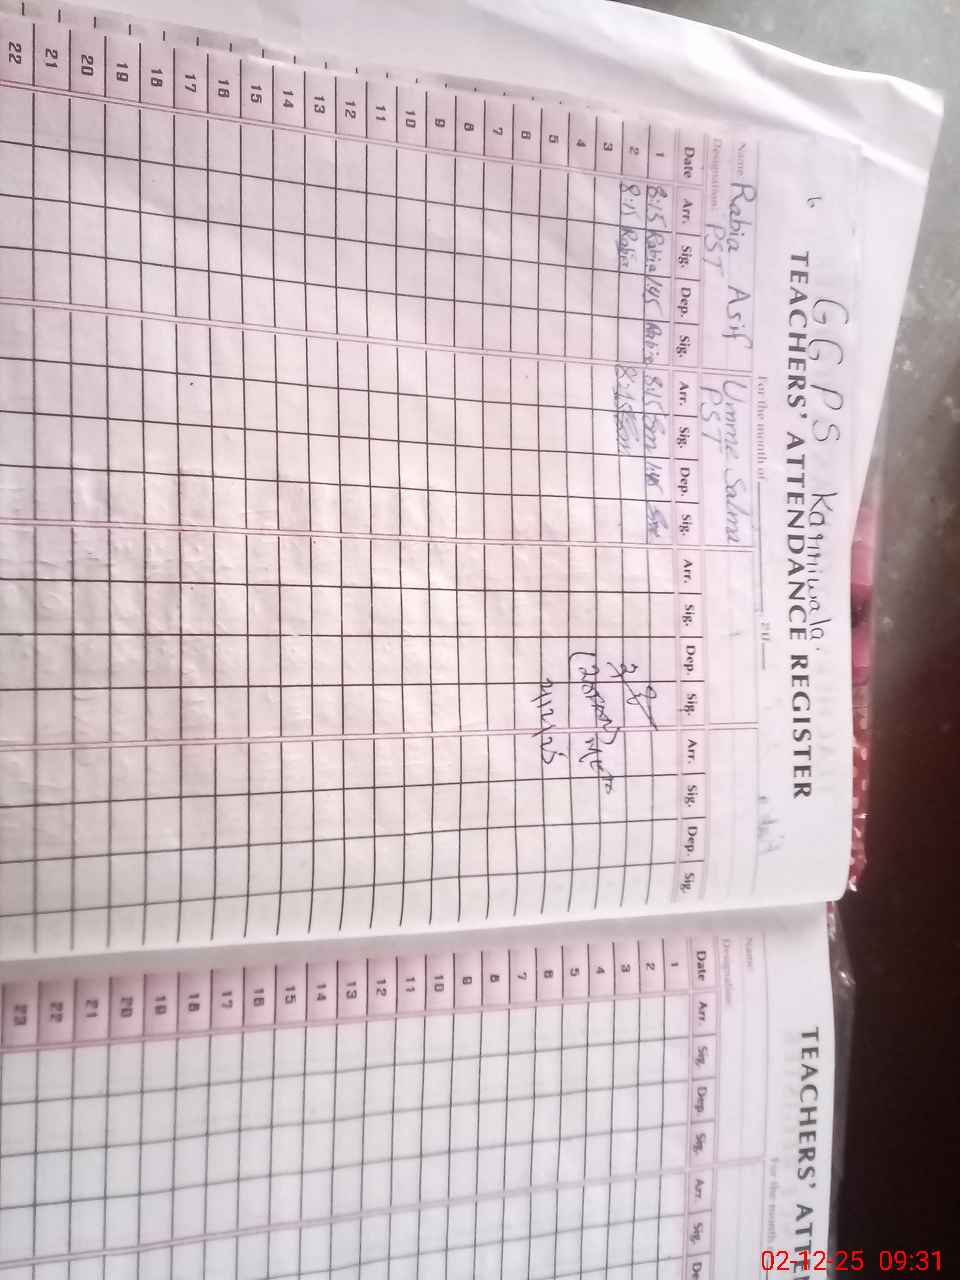 6
GGPS Kammiwala.
TEACHERS' ATTENDANCE REGISTER
For the month of 20
Name Rabia Asif Umme Salma
Designation: PST PST
Date Arr. Sig. Dep. Sig. Arr. Sig. Dep. Sig. Arr. Sig. Dep. Sig. Arr. Sig. Dep. Sig.
1 8:15 Rabia 1:45 Rabia 8:15 Sm 1:45 Sm
2 8:15 Rabia 8:15 Sm
3
4
5 2/12/25
6
7
8
9
10
11
12
13
14
15
16
17
18
19
20
21
22
TEACHERS' ATTE
For the month
Name
Designation:
Date Arr. Sig. Dep. Sig. Arr. Sig. De
1
2
3
4
5
6
7
8
9
10
11
12
13
14
15
16
17
18
19
20
21
22
23
02-12-25 09:31